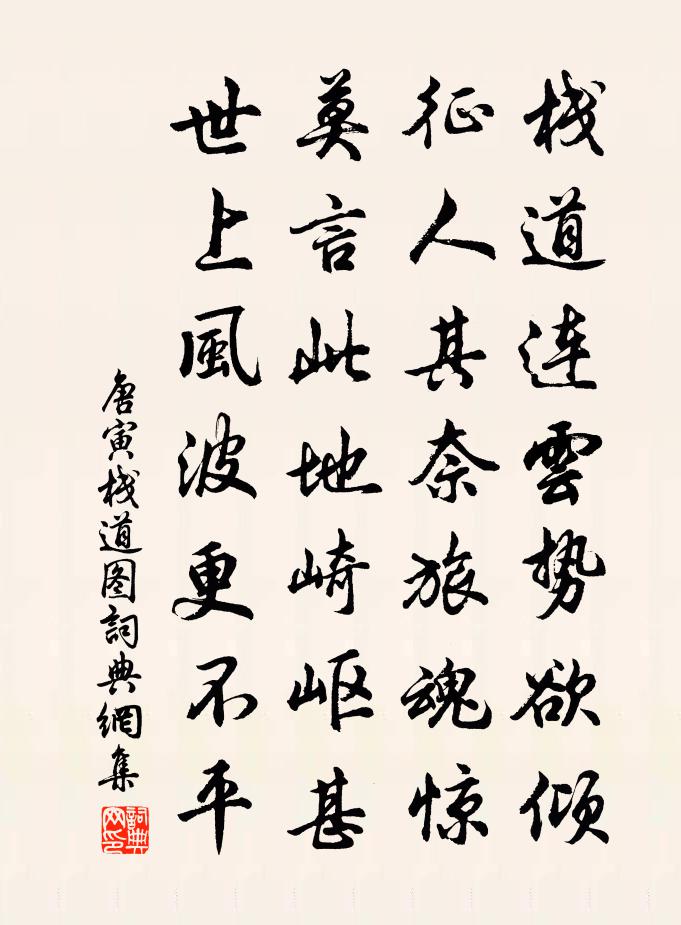 栈道连雲势欲倾
征人其奈旅魂惊
莫言此地崎岖甚
世上風波更不平
唐寅栈道图詞典網集
詞典網印